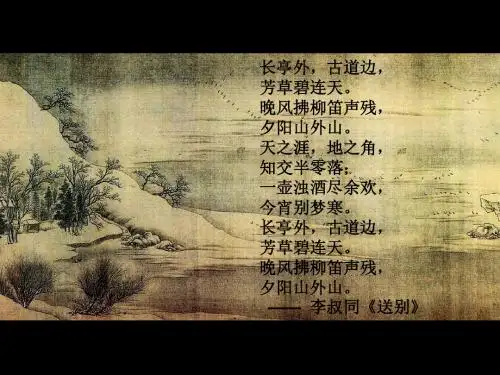 长亭外，古道边，
芳草碧连天。
晚风拂柳笛声残，
夕阳山外山。
天之涯，地之角，
知交半零落；
一壶浊酒尽余欢，
今宵别梦寒。
长亭外，古道边，
芳草碧连天。
晚风拂柳笛声残，
夕阳山外山。
—— 李叔同《送别》